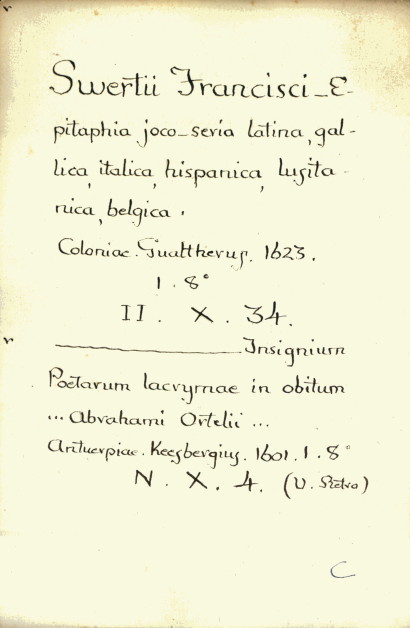 Swertii Francisci_E-
pitaphia joco_seria latina, gal-
lica, italica, hispanica, lusita-
nica, belgica.
Coloniae. Gualtherus. 1623.
1. 8°
II. X. 34.
Insignium
Poetarum lacrymae in obitum
... Abrahami Ortelii ...
Antuerpiae. Keesbergius. 1601. 1. 8°
N. X. 4. (V. Retro)
C